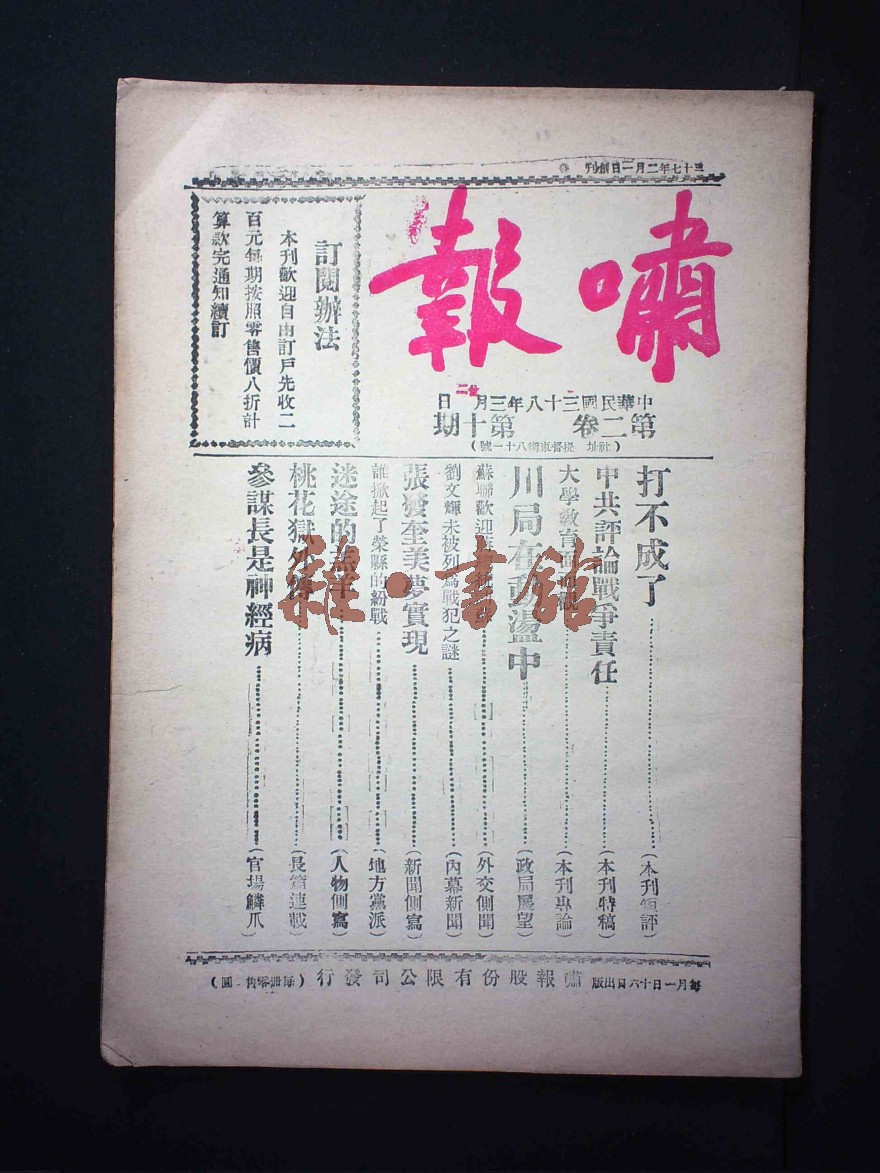 三十七年二月一日創刊
嘯報
中華民國三十八年三月廿二日
第二卷 第十期
(社址 提督東街八十一號)
訂閱辦法
本刊歡迎自由訂戶先收二
百元每期按照零售價八折計
算款完通知續訂
打不成了(本刊短評)
中共評論戰爭責任(本刊特稿)
大學教育面面觀(本刊專論)
川局在動盪中(政局展望)
蘇聯歡迎(外交側聞)
劉文輝未被列為戰犯之謎(內幕新聞)
張發奎美夢實現(新聞側寫)
誰掀起了榮縣的紛戰(地方黨派)
迷途的羔羊(人物側寫)
桃花獄外傳(長篇連載)
參謀長是神經病(官場鱗爪)
每月一日十六日出版 嘯報股份有限公司發行(每冊零售 圓)
雜·書館